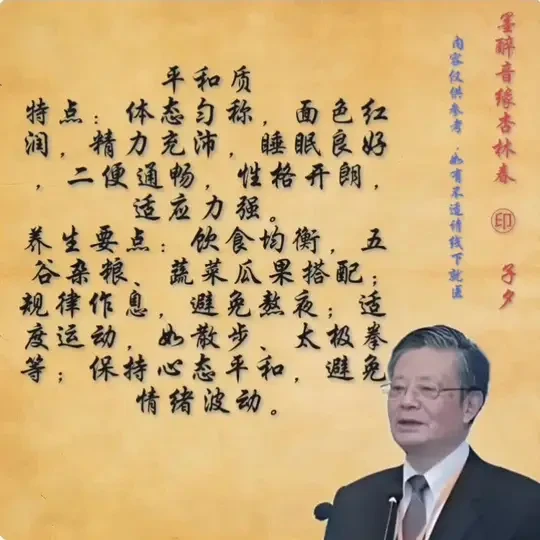 平和质
特点：体态匀称，面色红
润，精力充沛，睡眠良好
，二便通畅，性格开朗，
适应力强。
养生要点：饮食均衡，五
谷杂粮、蔬菜瓜果搭配；
规律作息，避免熬夜；适
度运动，如散步、太极拳
等；保持心态平和，避免
情绪波动。
墨醉音缘杏林春 ㊞ 子夕
内容仅供参考，如有不适请线下就医